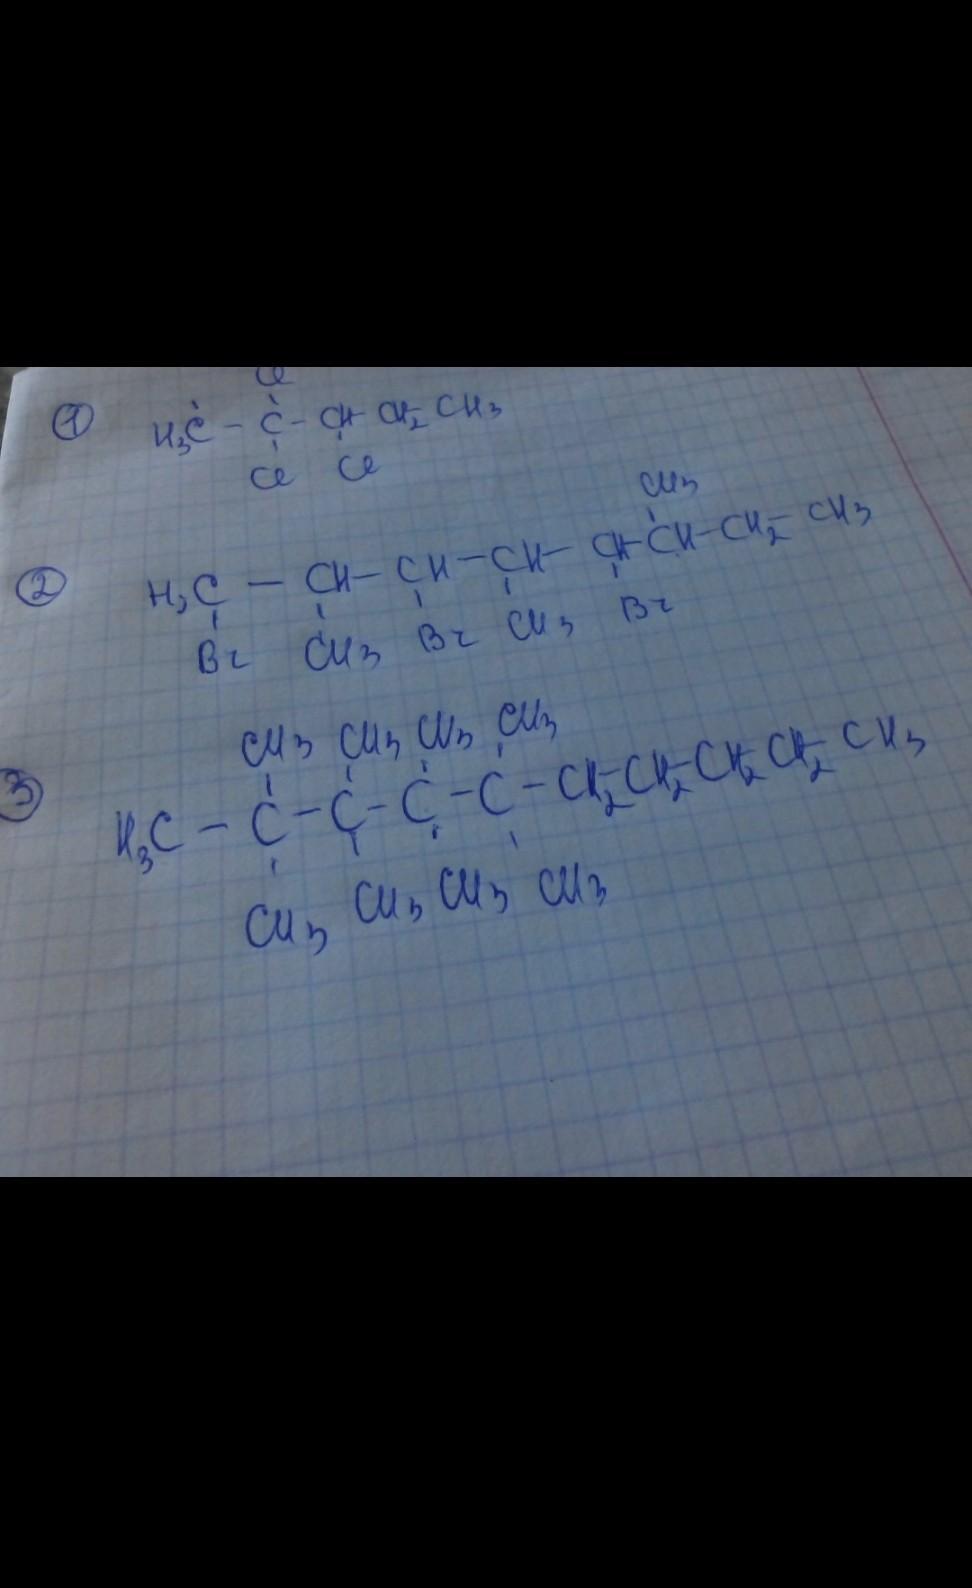 Cl
① H₃C - C - CH - CH₂ - CH₃
Cl Cl
CH₃
② H₂C - CH - CH - CH - CH - CH - CH₂ - CH₃
Br CH₃ Br CH₃ Br
CH₃ CH₃ CH₃ CH₃
③ H₃C - C - C - C - C - CH₂ - CH₂ - CH₂ - CH₂ - CH₃
CH₃ CH₃ CH₃ CH₃